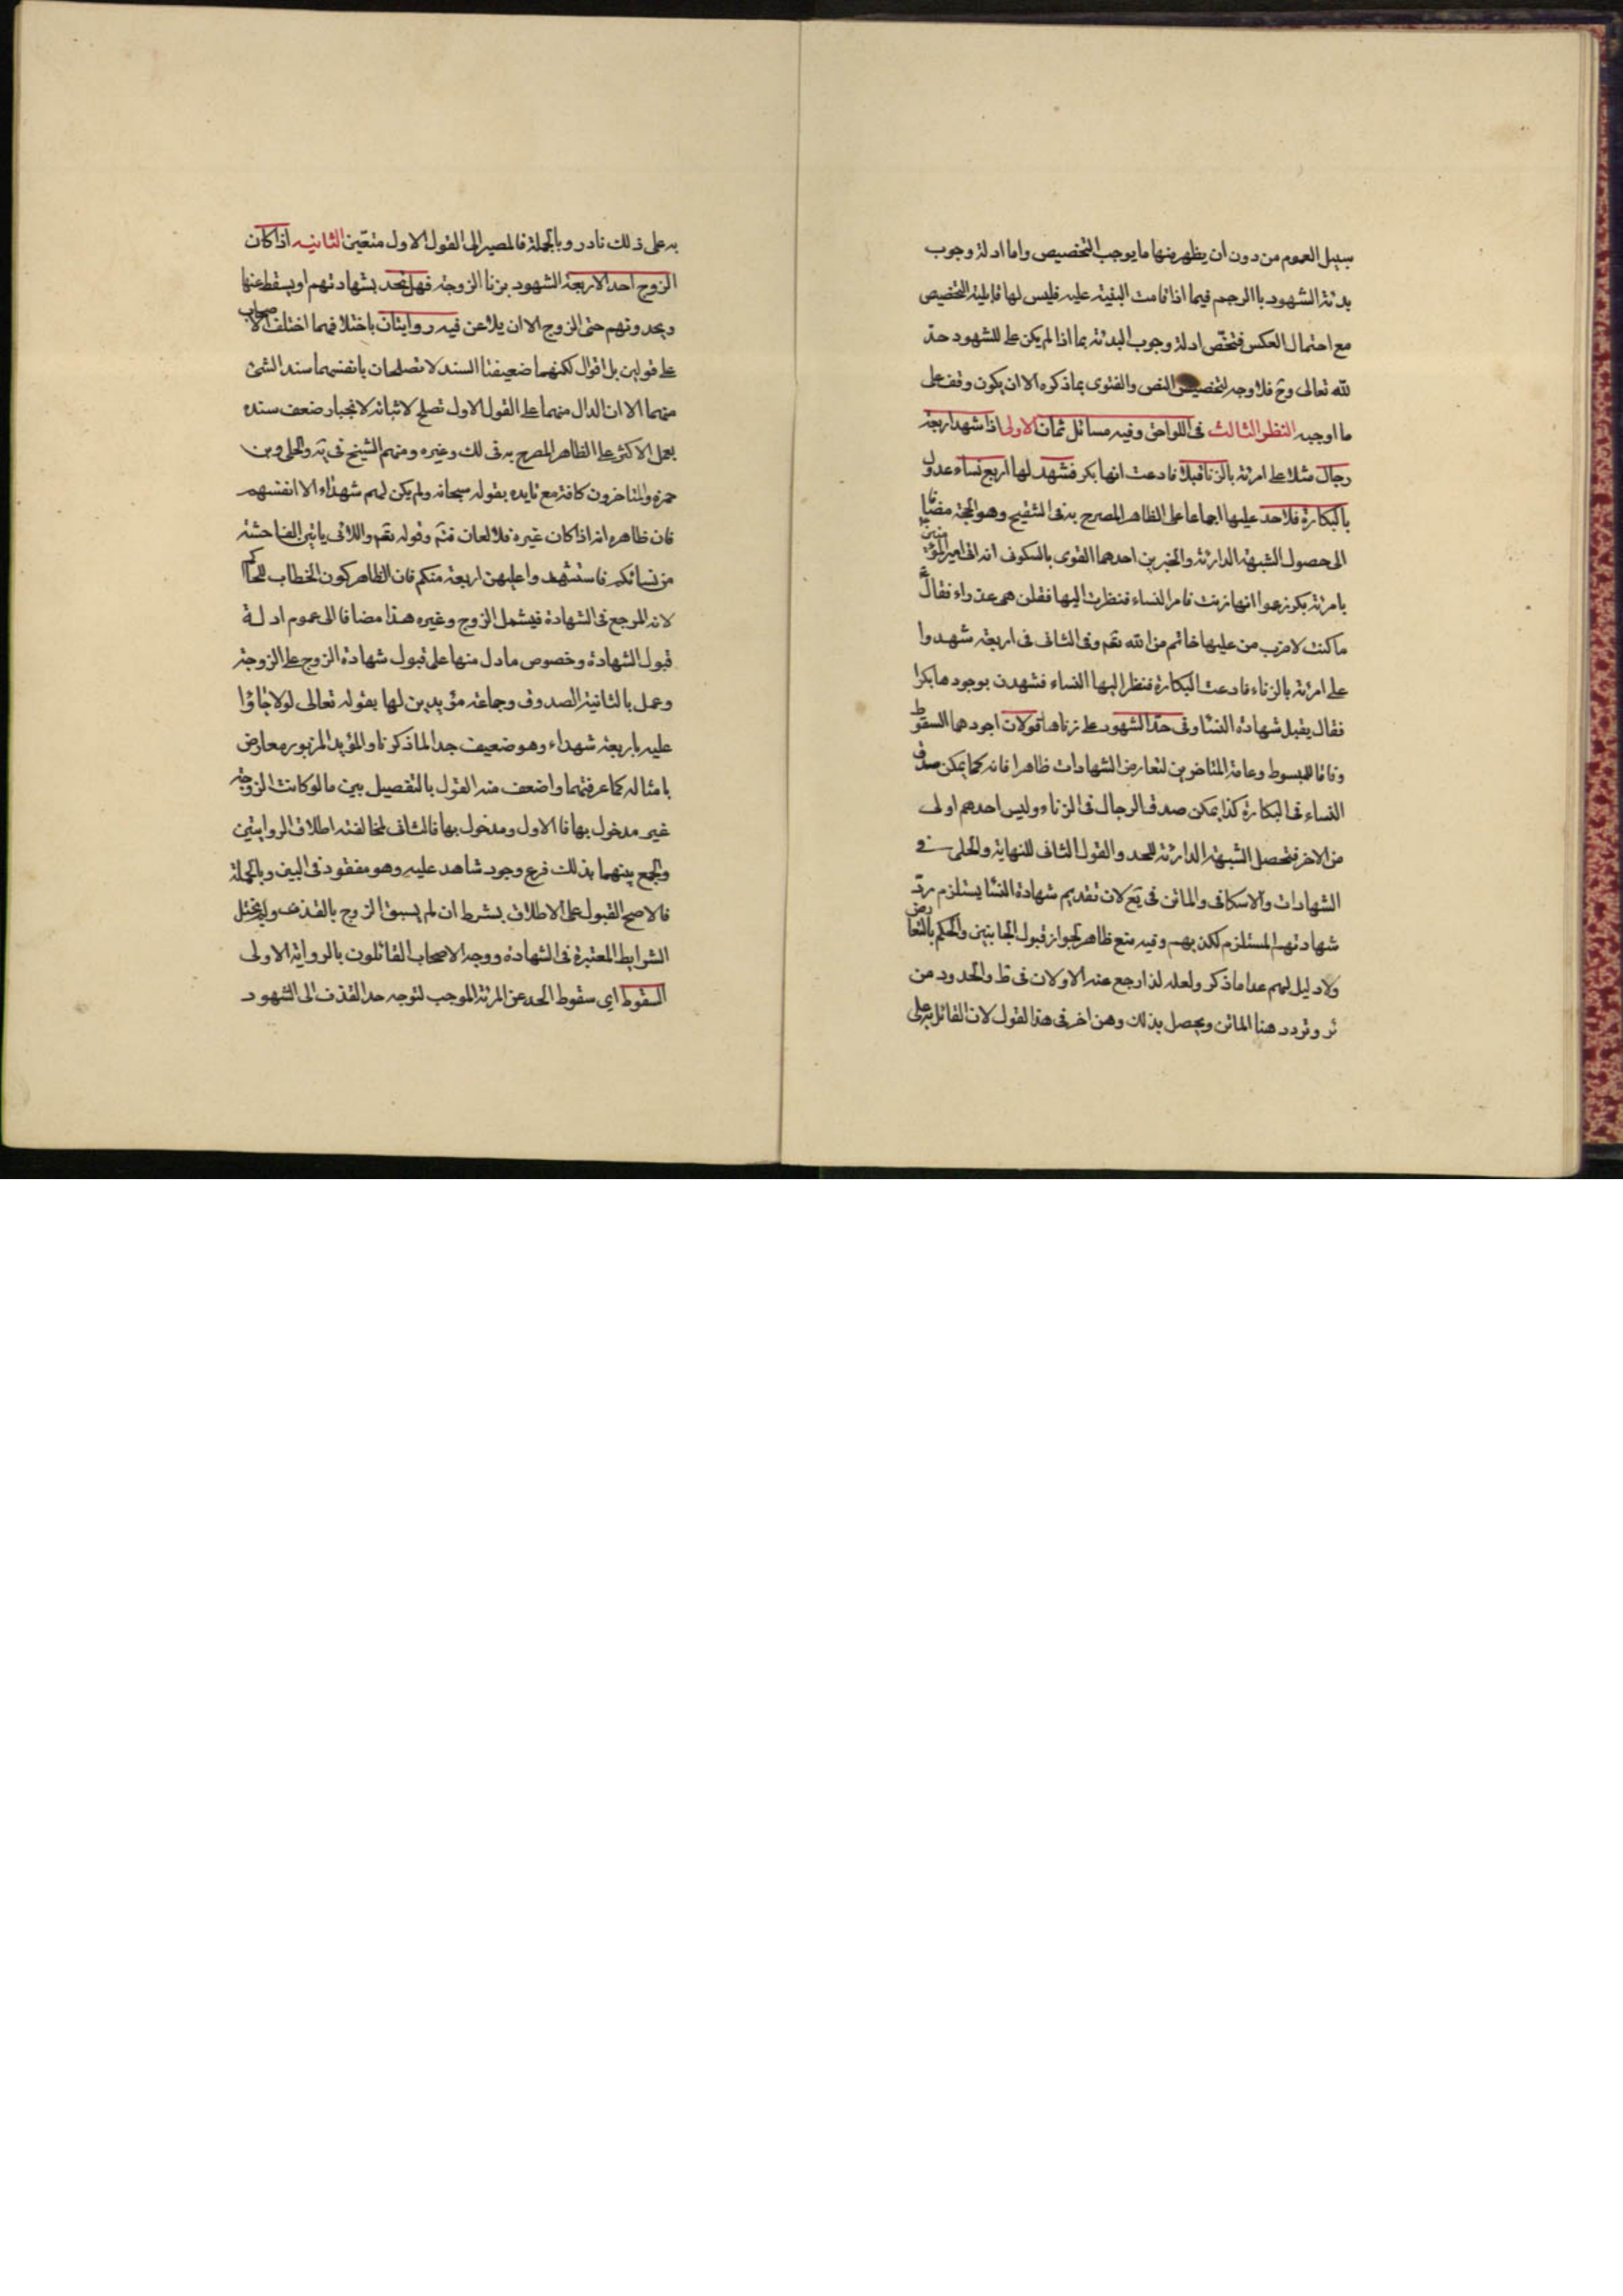 سبيل العموم من دون ان يظهر منها ما يوجب التخصيص واما ادلة وجوب
بدئة الشهود باالرجم فيما اذا قامت البينة عليه فليس لها قابلية التخصيص
مع احتمال العكس فتختص ادلة وجوب البدئة بما اذا لم يكن على للشهود حدّ
لله تعالى وح فلا وجه لتخصيص النص والفتوى بما ذكره الا ان يكون وقف على
ما اوجبه النظر الثالث فى اللواحق وفيه مسائل ثمان الاولى اذا شهد اربعة
رجال مثلا على امرئة بالزنا قبلا فادعت انها بكر فشهد لها اربع نساء عدول
بالبكارة فلا حد عليها اجماعا على الظاهر المصرح به فى التنقيح وهو الحجة مضافا
الى حصول الشبهة الدارئة والخبرين احدهما القوى بالسكونى انه اتى امير المؤمنين
بامرئة بكر زعموا انها زنت فامر النساء فنظرت اليها فقلن هى عذراء فقال ع
ما كنت لاضرب من عليها خاتم من الله تعم وفى الثانى فى اربعة شهدوا
على امرئة بالزناء فادعت البكارة فنظر اليها النساء فشهدن بوجودها بكرا
فقال يقبل شهادة النسا وفى حدّ الشهود على زناها قولان اجودهما السقوط
وفاقا للمبسوط وعامة المتاخرين لتعارض الشهادات ظاهرا فانه كما يمكن صدق
النساء فى البكارة كذا يمكن صدق الرجال فى الزناء وليس احدهم اولى
من الاخر فتحصل الشبهة الدارئة للحد والقول الثانى للنهاية والحلى فى
الشهادات والاسكافى والماتن فى يع لان تقديم شهادة النسا يستلزم ردّ
شهادتهم المستلزم لكذبهم وفيه منع ظاهر لجواز قبول الجانبين والحكم بالتعارض
ولا دليل لهم عدا ما ذكر ولعله لذا رجع عنه الاولان فى ط والحدود من
ئر وتردد هنا الماتن ويحصل بذلك وهن اخر فى هذا القول لان القائل به على
به على ذلك نادر وبالجملة فالمصير الى القول الاول متعين الثانيه اذا كان
الزوج احد الاربعة الشهود بزنا الزوجة فهل تحد بشهادتهم او يسقط عنها
ويحدونهم حتى الزوج الا ان يلاعن فيه روايتان باختلافهما اختلف الاصحاب
على قولين بل اقوال لكنهما ضعيفتا السند لا تصلحان بانفسهما سند الشئ
منهما الا ان الدال منهما على القول الاول تصلح لاثباته لانجبار ضعف سنده
بعمل الاكثر على الظاهر المصرح به فى لك وغيره ومنهم الشيخ فى يه والحلى وبن
حمزة والمتاخرون كافة مع تايده بقوله سبحانه ولم يكن لهم شهداء الا انفسهم
فان ظاهره انه اذا كان غيره فلا لعان فتم وقوله تعم واللاتى ياتين الفاحشة
من نسائكم فاستشهدوا عليهن اربعة منكم فان الظاهر كون الخطاب للحاكم
لانه المرجع فى الشهادة فيشمل الزوج وغيره هذا مضافا الى عموم ادلة
قبول الشهادة وخصوص ما دل منها على قبول شهادة الزوج على الزوجة
وعمل بالثانية الصدوق وجماعة مؤيدين لها بقوله تعالى لولا جاؤا
عليه باربعة شهداء وهو ضعيف جدا لما ذكرنا والمؤيد المزبور معارض
بامثاله كما عرفتهما واضعف منه القول بالتفصيل بين ما لو كانت الزوجة
غير مدخول بها فالاول ومدخول بها فالثانى لمخالفته اطلاق الروايتين
والجمع بينهما بذلك فرع وجود شاهد عليه وهو مفقود فى البين وبالجملة
فالاصح القبول على الاطلاق بشرط ان لم يسبق الزوج بالقذف ولم يختل
الشرايط المعتبرة فى الشهادة ووجه الاصحاب القائلون بالرواية الاولى
السقوط اى سقوط الحد عن المرئة الموجب لتوجه حد القذف الى الشهود